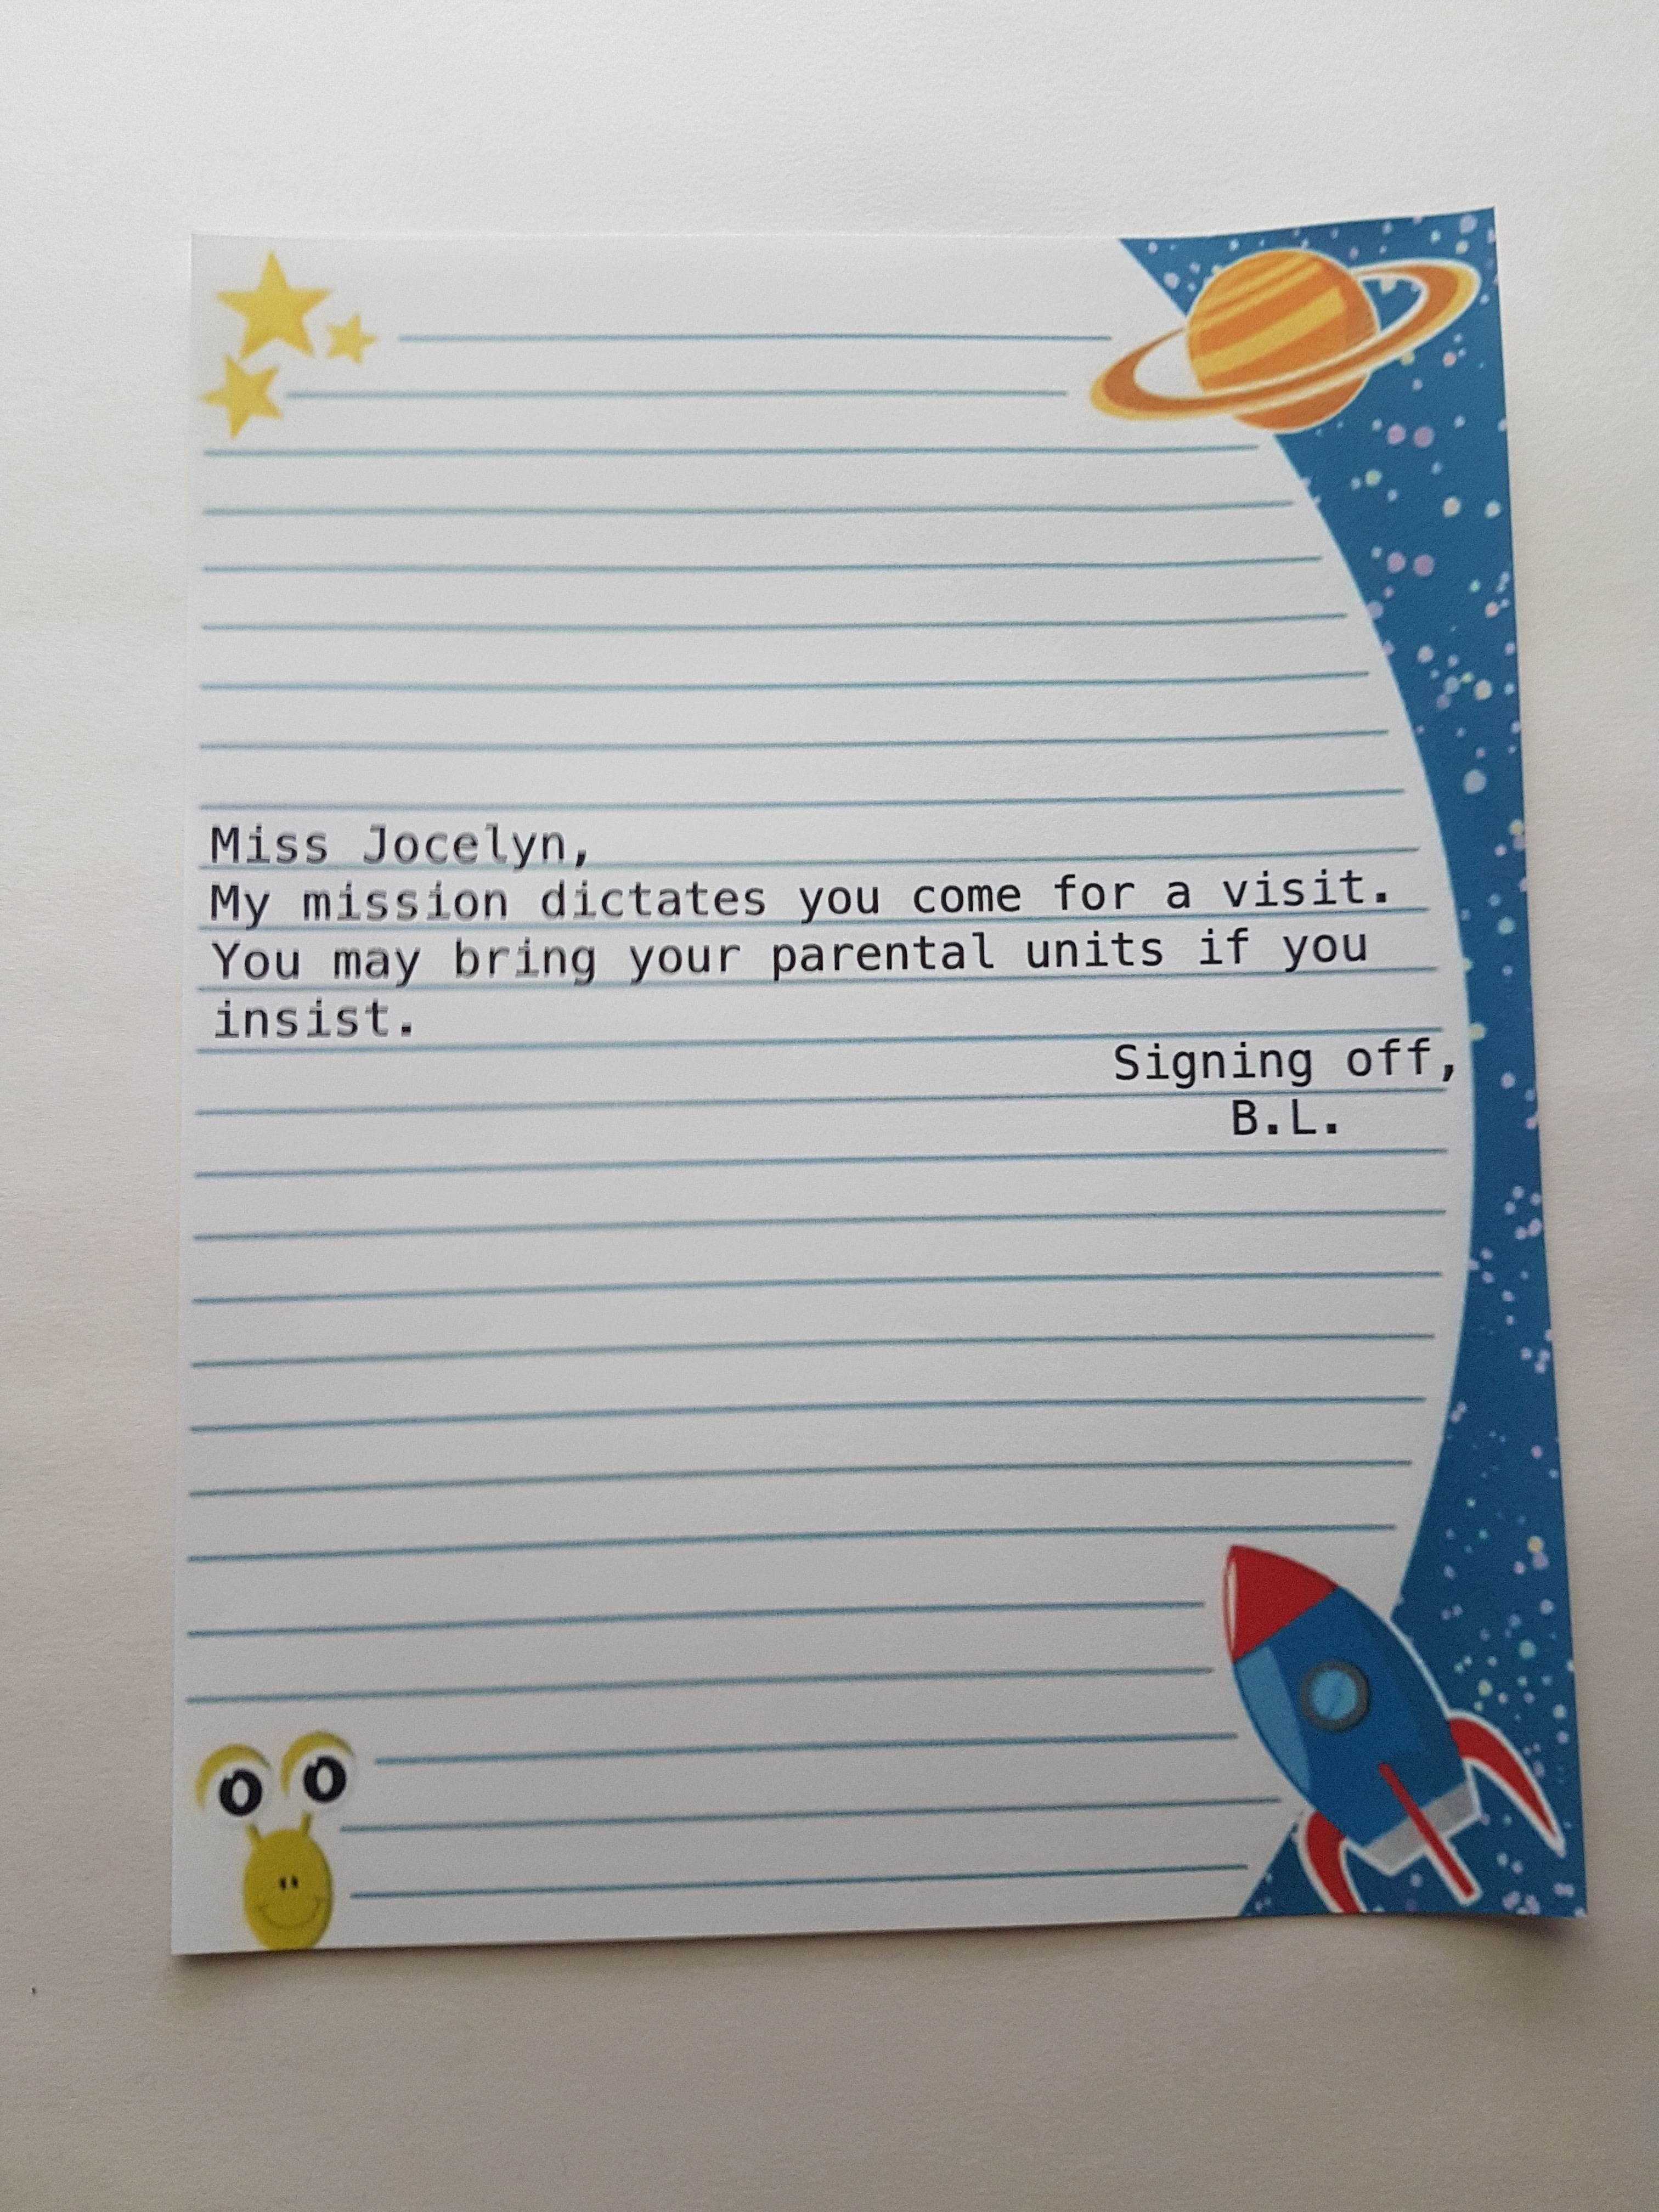 Miss Jocelyn,
My mission dictates you come for a visit.
You may bring your parental units if you
insist.
Signing off,
B.L.